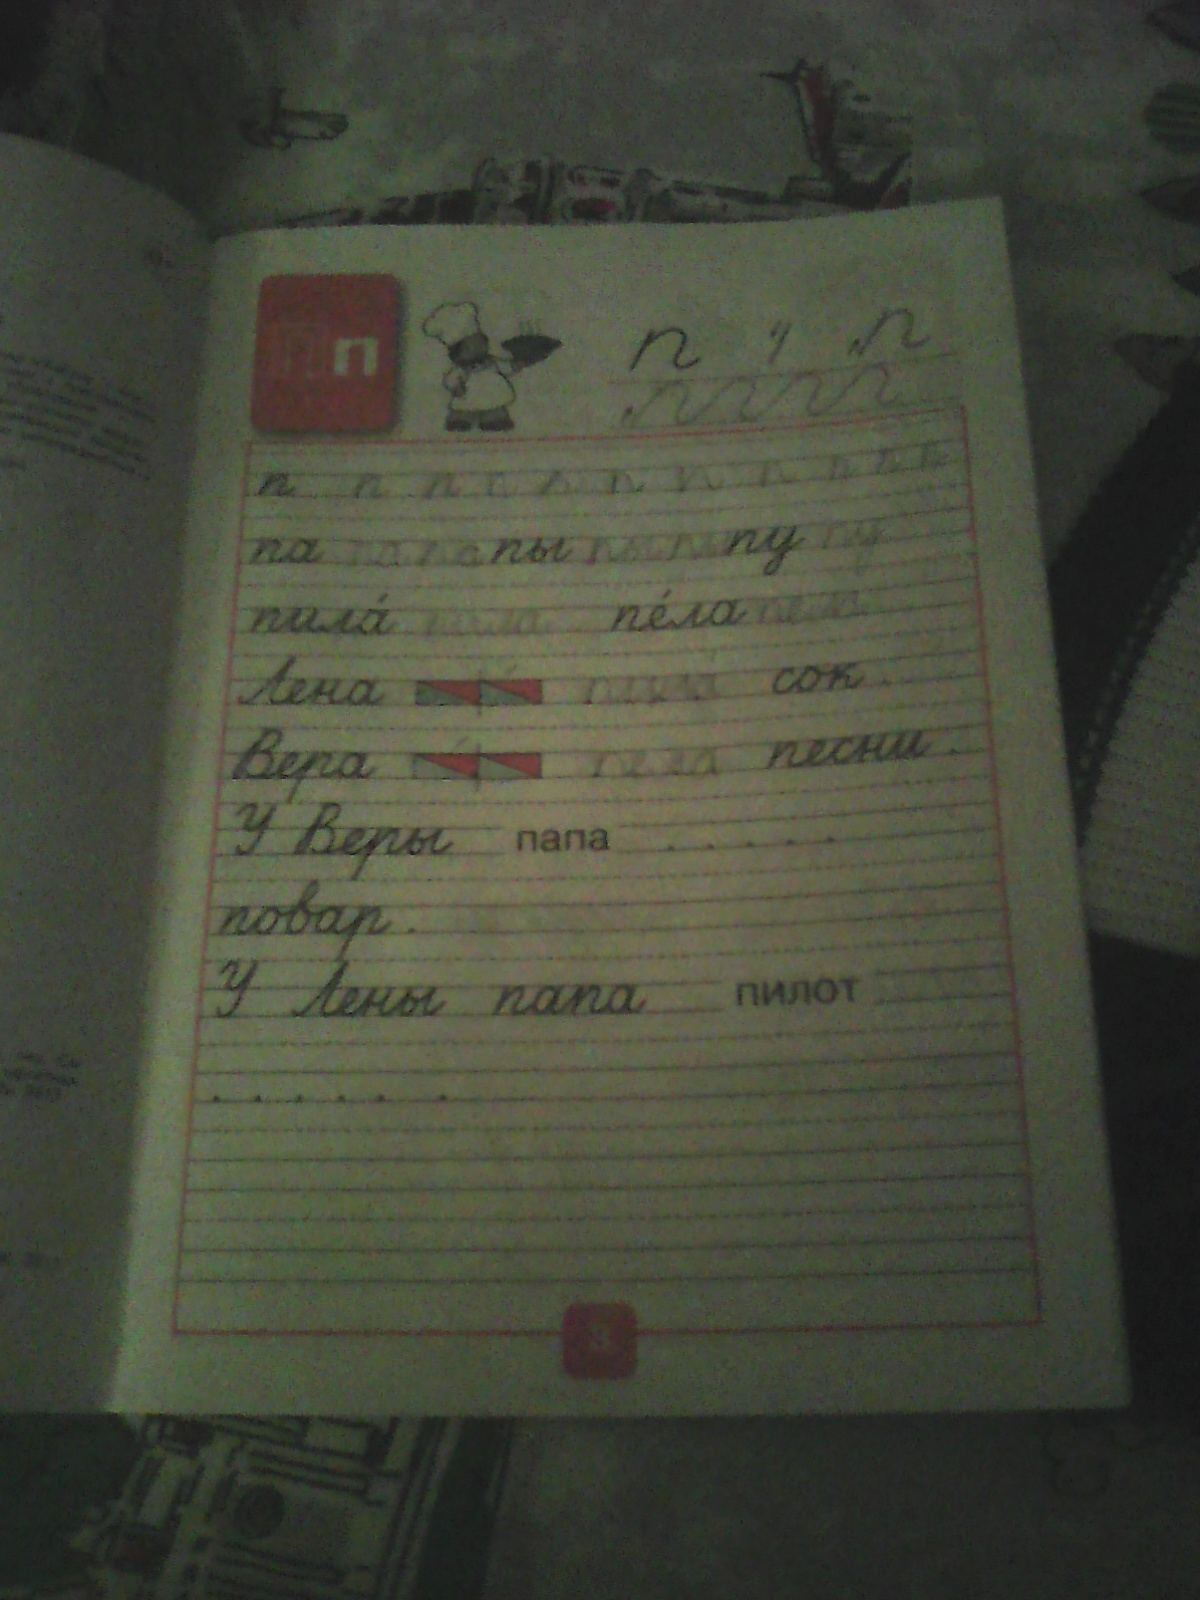 Пп
п п п
п п п п п п п п п п п
па па па пы пы пы пу пу
пила́ пила пе́ла пела
Лена пила сок.
Вера пела песни.
У Веры папа . . . . .
повар.
У Лены папа пилот
. . . . . .
3